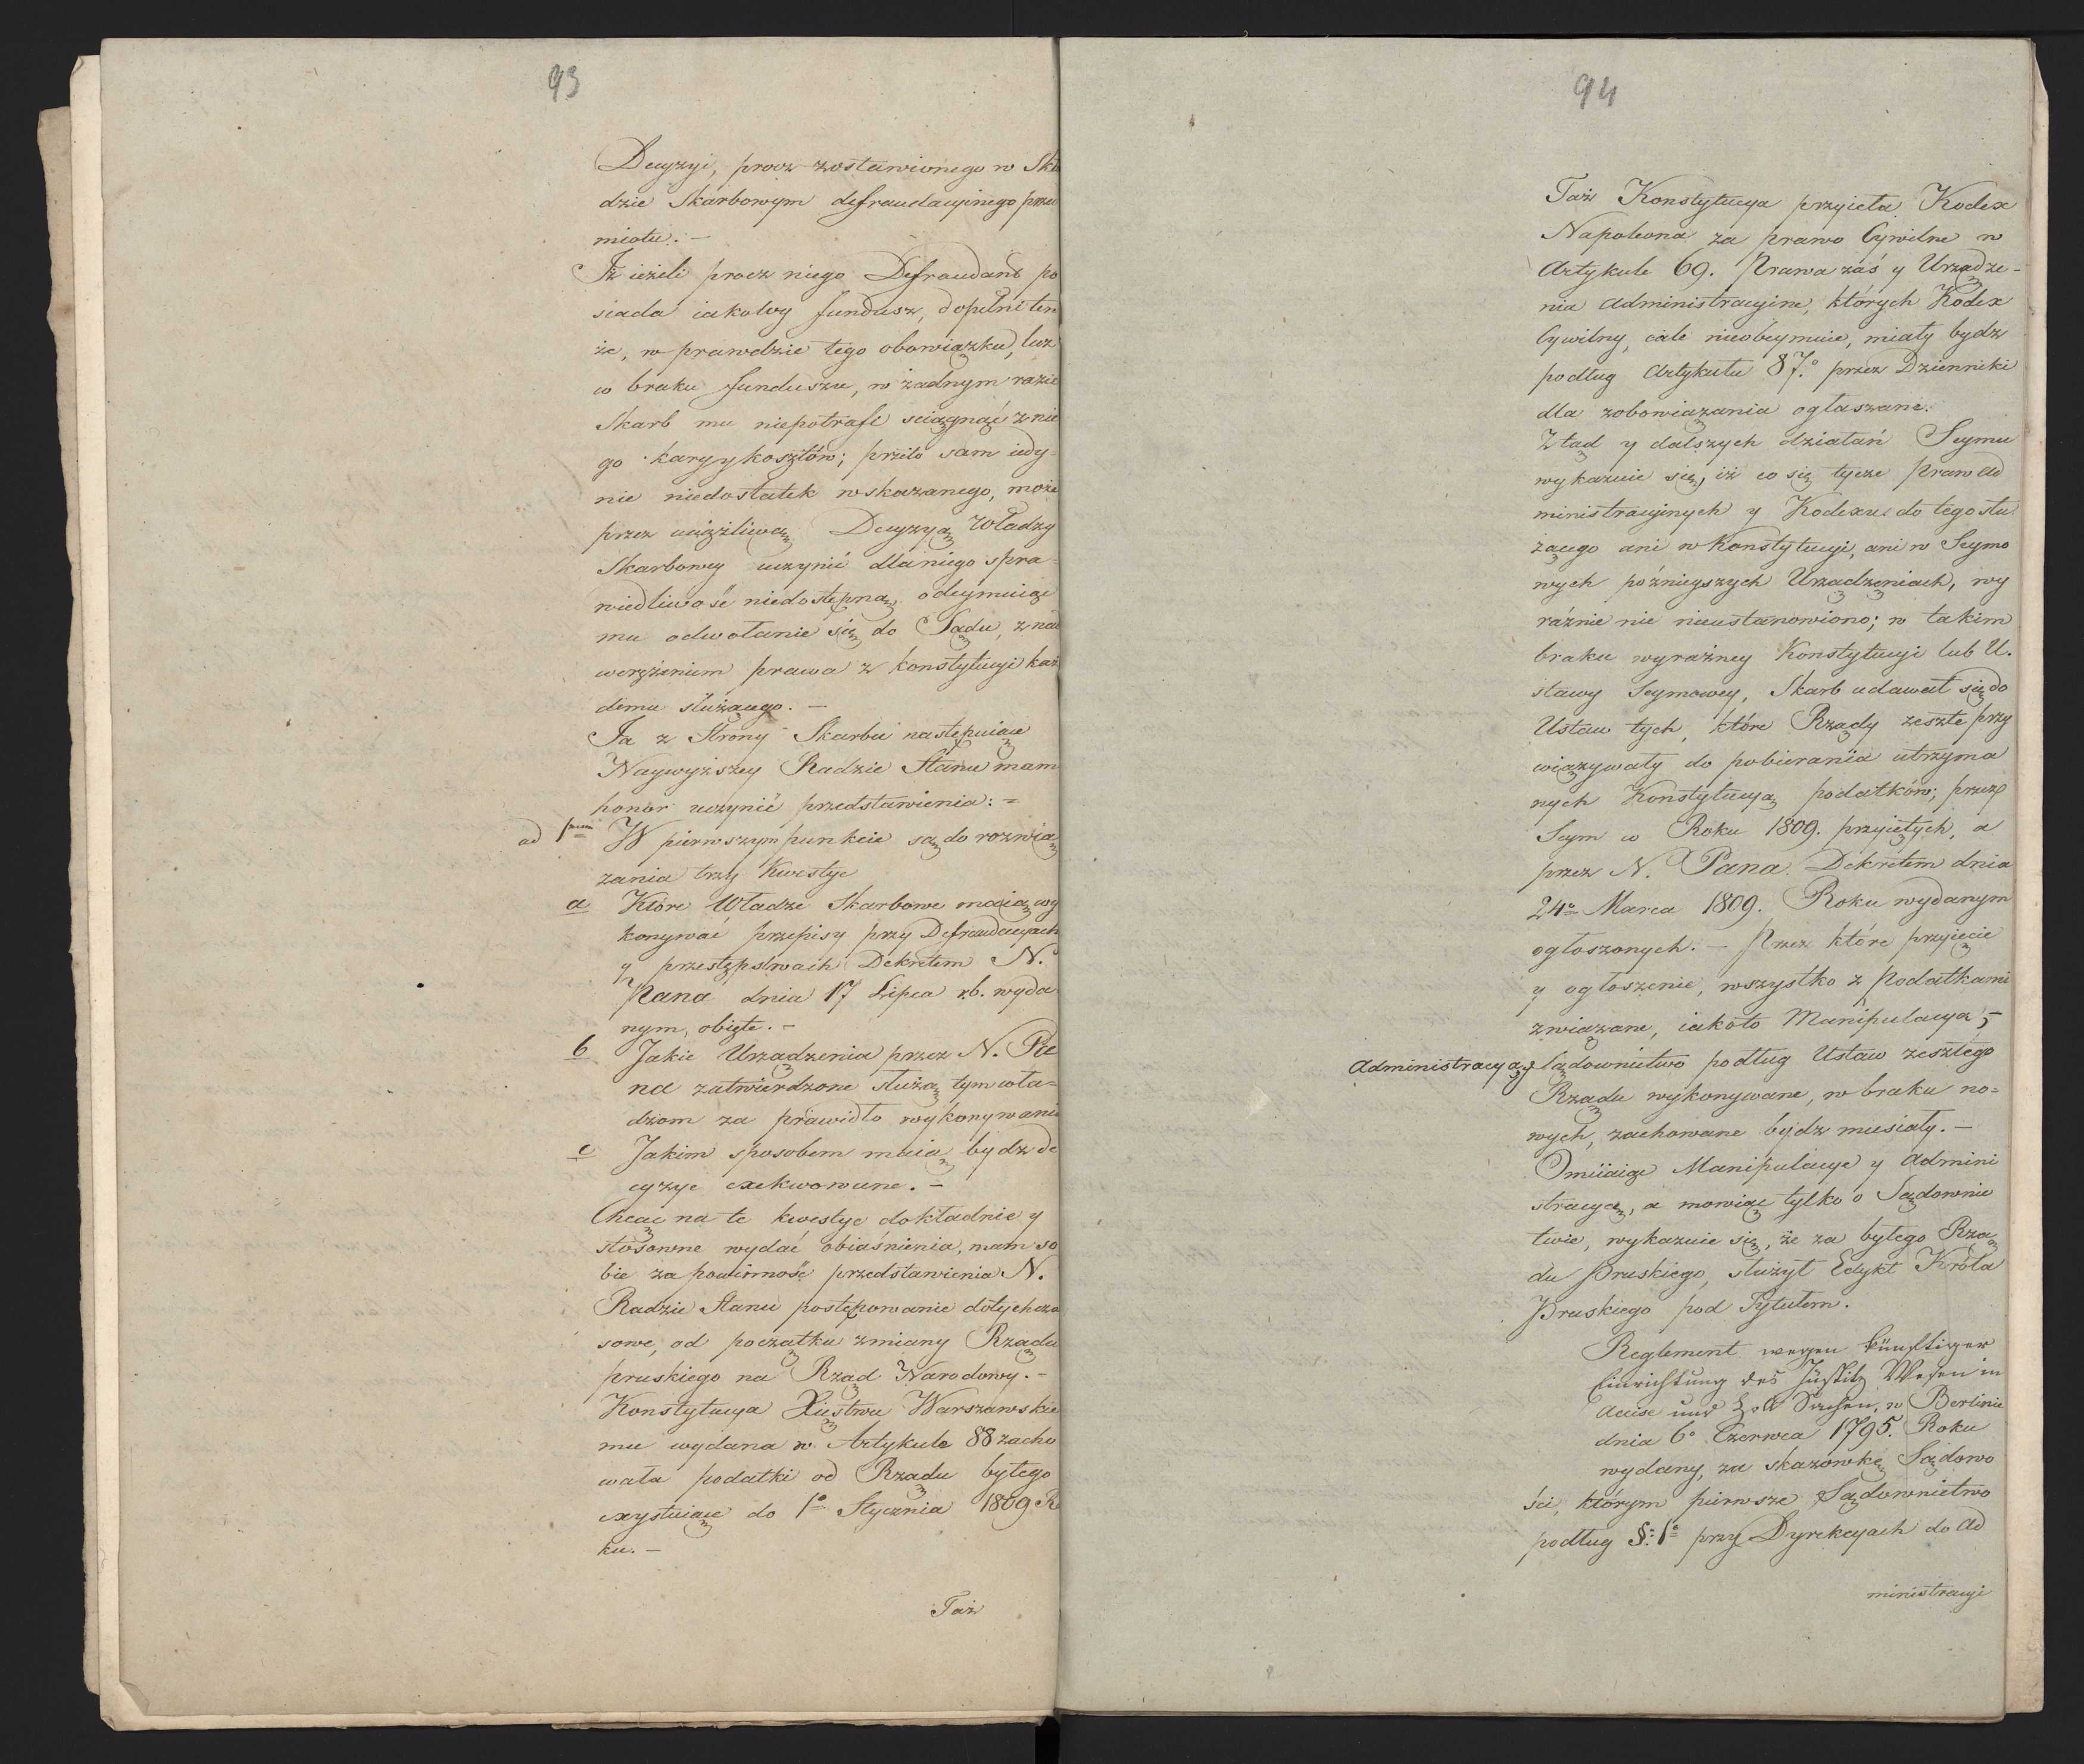 93
Decyzyi, procz zostawionego w Skła
dzie Skarbowym defraudacyinego przed
miotu. —
Iż ieżeli procz niego Defraudant po
siada iakowy fundusz, dopełni ten
że, w prawdzie tego obowiązku, lecz
w braku funduszu, w żadnym razie
Skarb mu niepotrafi sciągnąć z nie
go kary y kosztów; przeto sam iedy-
nie niedostatek wskazanego, może
przez uciążliwą Decyzyą Władzy
Skarbowey uczynić dla niego spra-
wiedliwość niedostępną, odeymuiąc
mu odwołanie się do Sądu, z nad
werężeniem prawa z konstytucyi każ
demu służącego. —
Ja z Strony Skarbu następuiące
Naywyższey Radzie Stanu mam
honor uczynić przedstawienia: =
ad 1mum W pierwszym punkcie są do rozwią
zania trzy kwestye
a Które Władze Skarbowe maią wy
konywać przepisy przy Defraudacyach
y przestępstwach Dekretem N.
Pana dnia 17 Lipca r.b. wyda
nym, obięte. —
b Jakie Urządzenia przez N. Pa
na zatwierdzone służą tym wła-
dzom za prawidło wykonywania
c Jakim sposobem maią bydz de
cyzye exekwowane. —
Chcąc na te kwestye dokładnie y
stosowne wydać obiaśnienia, mam so
bie za powinność przedstawienia N.
Radzie Stanu postępowanie dotychcza
sowe, od początku zmiany Rządu
pruskiego na Rząd Narodowy. —
Konstytucya Xięstwu Warszawskie
mu wydana w Artykule 88 zacho
wała podatki od Rządu byłego
exystuiące do 1o Stycznia 1809 Ro
ku. —
Taż
94
Taż Konstytucya przyięła Kodex
Napoleona za prawo Cywilne w
Artykule 69. Prawa zaś y Urządze-
nia administracyine, których Kodex
Cywilny, cale nieobeymuie, miały bydz
podług Artykułu 87o przez Dzienniki
dla zobowiązania ogłaszane.
Ztąd y dalszych działań Seymu
wykazuie się, iż co się tycze praw ad
ministracyinych y Kodexu do tego słu
żącego ani w Konstytucyi, ani w Seymo
wych póżnieyszych Urządzeniach, wy
raźnie nic nieustanowiono; w takim
braku wyraźney Konstytucyi lub U.
stawy Seymowey, Skarb udawał się do
Ustaw tych, które Rządy zeszłe przy
wiązywały do pobierania utrzyma
nych Konstytucyą podatków; przez
Seym w Roku 1809. przyiętych, a
przez N. Pana Dekretem dnia
24o Marca 1809. Roku wydanym
ogłoszonych. — Przez które przyięcie
y ogłoszenie, wszystko z Podatkami
związane, iakoto Manipulacya,
Administracya, y Sądownictwo podług Ustaw zeszłego
Rządu wykonywane, w braku no=
wych, zachowane bydz musiały. —
Omiiaiąc Manipulacye y Admini
stracyą, a mowiąc tylko o Sądownic
twie, wykazuie się, że za byłego Rzą
du Pruskiego, służył Edykt Króla
Pruskiego pod Tytułem.
Reglement wegen künftiger
Einrichtung des Justitz Wesen in
Accise und Zoll Sachen, w Berlinie
dnia 6o Czerwca 1795. Roku
wydany, za skazowkę Sądowo
ści, którym pierwsze Sądownictwo
podług §: 1o przy Dyrekcyach do Ad
ministracyi